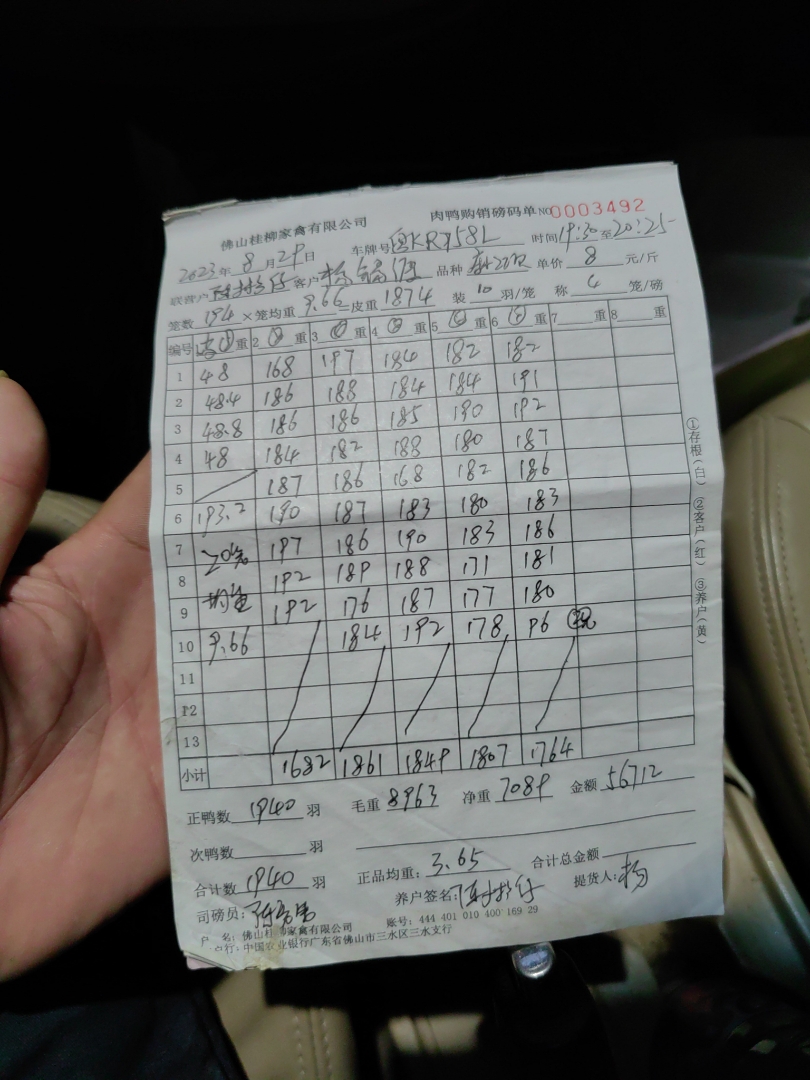 佛山桂柳家禽有限公司 肉鸭购销磅码单 NO 0003492
2023年 8月29日 车牌号 粤KR758L 时间 19:30 至 20:25
联营户 客户 杨 品种 单价 8 元/斤
笼数 194 ×笼均重 9.66 =皮重 1874 装 10 羽/笼 称 4 笼/磅
编号 重 2 重 3 重 4 重 5 重 6 重 7 重 8 重
1 48 168 197 184 182 182
2 48.4 186 188 184 184 191
3 48.8 186 186 185 190 192
4 48 184 182 188 180 187
5 187 186 168 182 186
6 193.2 190 187 183 180 183
7 20笼 197 186 190 183 186
8 192 189 188 171 181
9 均重 192 176 187 177 180
10 9.66 184 192 178 96
11
12
13
小计 1682 1861 1849 1807 1764
正鸭数 1940 羽 毛重 8963 净重 7089 金额 56712
次鸭数 羽
合计数 1940 羽 正品均重: 3.65 合计总金额
司磅员: 养户签名: 提货人: 杨
户 名: 佛山桂柳家禽有限公司 账号: 444 401 010 400 169 29
行: 中国农业银行广东省佛山市三水区三水支行
①存根(白) ②客户(红) ③养户(黄)